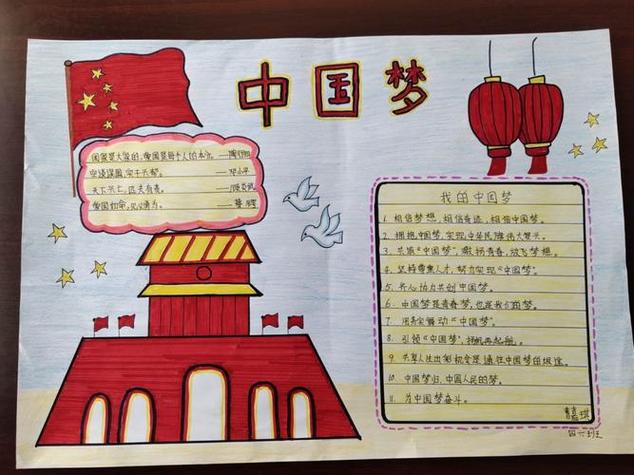 中国梦
国家是大家的，爱国是每个人的本分。——陶行知
空谈误国，实干兴邦。——邓小平
天下兴亡，匹夫有责。——顾炎武
爱国如命，见义勇为。
我的中国梦
1. 相信梦想，相信奇迹，相信中国梦。
2. 拥抱中国梦，实现中华民族伟大复兴。
3. 共筑“中国梦”，激扬青春，放飞梦想。
4. 坚持尊重人才，努力实现“中国梦”。
5. 齐心协力共创中国梦。
6. 中国梦是青春梦，也是我们的梦。
7. 用务实舞动“中国梦”。
8. 引领“中国梦”，扬帆再起航。
9. 共享人生出彩机会是通往中国梦的坦途。
10. 中国梦归，中国人民的梦。
11. 为中国梦奋斗。
四六班